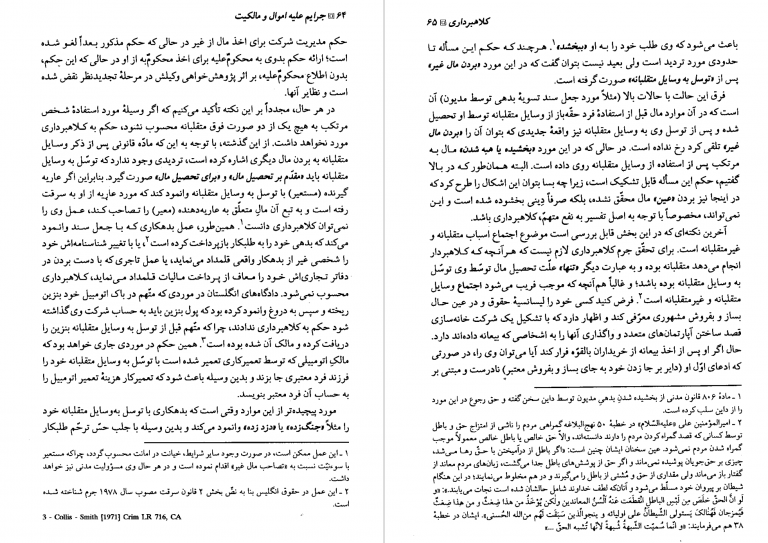 ۶۴ جرایم علیه اموال و مالکیت
حکم مدیریت شرکت برای اخذ مال از غیر در حالی که حکم مذکور بعداً لغو شده
است؛ ارائه حکم بدوی به محکوم‌علیه برای اخذ محکوم‌به از او در حالی که این حکم،
بدون اطلاع محکوم‌علیه، بر اثر پژوهش‌خواهی وکیلش در مرحلهٔ تجدیدنظر نقض شده
است و نظایر آنها.
در هر حال، مجدداً بر این نکته تأکید می‌کنیم که اگر وسیلهٔ مورد استفادهٔ شخص
مرتکب به هیچ یک از دو صورت فوق متقلبانه محسوب نشود، حکم به کلاهبرداری
مورد نخواهد داشت. از این گذشته، با توجه به این که مادّه قانونی پس از ذکر وسایل
متقلبانه به بردن مال دیگری اشاره کرده است، تردیدی وجود ندارد که توسّل به وسایل
متقلبانه باید «مقدّم بر تحصیل مال» و «برای تحصیل مال» صورت گیرد. بنابراین اگر عاریه
گیرنده (مستعیر) با توسل به وسایل متقلبانه وانمود کند که مورد عاریه از او به سرقت
رفته است و به تبع آن مالِ متعلّق به عاریه‌دهنده (معیر) را تصاحب کند، عمل وی را
نمی‌توان کلاهبرداری دانست ۱. همین‌طور، عمل بدهکاری که با جعل سند وانمود
می‌کند که بدهی خود را به طلبکار بازپرداخت کرده است ۲، یا با تغییر شناسنامه‌اش خود
را شخصی غیر از بدهکار واقعی قلمداد می‌نماید، یا عمل تاجری که با دست بردن در
دفاتر تجاری‌اش خود را معاف از پرداخت مالیات قلمداد می‌نماید، کلاهبرداری
محسوب نمی‌شود. دادگاه‌های انگلستان در موردی که متّهم در باک اتومبیل خود بنزین
ریخته و سپس به دروغ وانمود کرده بود که پول بنزین باید به حساب شرکت وی گذاشته
شود حکم به کلاهبرداری ندادند، چرا که متّهم قبل از توسل به وسایل متقلبانه بنزین را
دریافت کرده و مالک آن شده بوده است ۳. همین حکم در موردی جاری خواهد بود که
مالکِ اتومبیلی که توسط تعمیرکاری تعمیر شده است با توسّل به وسایل متقلبانه خود را
فرزند فرد معتبری جا بزند و بدین وسیله باعث شود که تعمیرکار هزینهٔ تعمیر اتومبیل را
به حساب آن فرد معتبر بنویسد.
مورد پیچیده‌تر از این موارد وقتی است که بدهکاری با توسل به‌وسایل متقلبانه خود
را مثلاً «جنگ‌زده» یا «دزد زده» وانمود می‌کند و بدین وسیله با جلب حسّ ترحّم طلبکار
۱ ـ این عمل ممکن است، در صورت وجود سایر شرایط، خیانت در امانت محسوب گردد، چراکه مستعیر
با سوءنیّت نسبت به «تصاحب مال غیر» اقدام نموده است و در هر حال وی مسؤولیت مدنی نیز خواهد
داشت.
۲ ـ این عمل در حقوق انگلیس بنا به نصّ بخش ۲ قانون سرقت مصوب سال ۱۹۷۸ جرم شناخته شده
است.
3 - Collis - Smith [1971] Crim LR 716, CA
کلاهبرداری ۶۵
باعث می‌شود که وی طلب خود را به او «ببخشد» ۱. هرچند که حکم این مسأله تا
حدودی مورد تردید است ولی بعید نیست بتوان گفت که در این مورد «بردن مال غیر»
پس از «توسل به وسایل متقلبانه» صورت گرفته است.
فرق این حالت با حالات بالا (مثلاً مورد جعل سند تسویهٔ بدهی توسط مدیون) آن
است که در آن موارد مال قبل از استفادهٔ فرد حقه‌باز از وسایل متقلبانه توسط او تحصیل
شده و پس از توسل وی به وسایل متقلبانه نیز واقعهٔ جدیدی که بتوان آن را «بردن مال
غیر» تلقی کرد رخ نداده است. در حالی که در این مورد «بخشیده یا هبه شدن» مال به
مرتکب پس از استفاده از وسایل متقلبانه روی داده است. البته همان‌طور که در بالا
گفتیم، حکم این مسأله قابل تشکیک است، زیرا چه بسا بتوان این اشکال را طرح کرد که
در اینجا نیز بردن «عین» مال محقّق نشده، بلکه صرفاً دِینی بخشوده شده است و این
نمی‌تواند، مخصوصاً با توجه به اصل تفسیر به نفع متهم، کلاهبرداری باشد.
آخرین نکته‌ای که در این بخش قابل بررسی است موضوع اجتماع اسباب متقلبانه و
غیرمتقلبانه است. برای تحقّق جرم کلاهبرداری لازم نیست که هرآنچه که کلاهبردار
انجام می‌دهد متقلبانه بوده و به عبارت دیگر «تنها» علّت تحصیل مال توسّط وی توسّل
به وسایل متقلبانه بوده باشد؛ و غالباً هم آنچه که موجب فریب می‌شود اجتماع وسایل
متقلبانه و غیرمتقلبانه است ۲. فرض کنید کسی خود را لیسانسیهٔ حقوق و در عین حال
بساز و بفروش مشهوری معرّفی کند و اظهار دارد که با تشکیل یک شرکت خانه‌سازی
قصد ساختن آپارتمان‌های متعدد و واگذاری آنها را به اشخاصی که بیعانه داده‌اند دارد.
حال اگر او پس از اخذ بیعانه از خریداران بالقوّه فرار کند آیا می‌توان وی را، در صورتی
که ادعای اوّل او (دایر بر جا زدن خود به جای بساز و بفروش معتبر) نادرست و مبتنی بر
۱ ـ مادهٔ ۸۰۶ قانون مدنی از بخشیده شدنِ بدهیِ مدیون توسط داین سخن گفته و حق رجوع در این مورد
را از داین سلب کرده است.
۲ ـ امیرالمؤمنین علی «علیه‌السّلام» در خطبهٔ ۵۰ نهج‌البلاغه گمراهی مردم را ناشی از امتزاج حق و باطل
توسط کسانی که قصد گمراه کردن مردم را دارند دانسته‌اند، والاّ حق خالص یا باطل خالص معمولاً موجب
گمراه شدن مردم نمی‌شود. عین سخنان ایشان چنین است: «اگر باطل از درآمیختن با حقّ رها می‌شد،
چیزی بر حق‌جویان پوشیده نمی‌ماند و اگر حق از پوشش‌های باطل جدا می‌گشت، زبان‌های مردم معاند از
گفتار باز می‌ماند ولی مقداری از حق و مُشتی از باطل را می‌گیرند و در هم مخلوط می‌نمایند؛ در این هنگام
شیطان بر پیروان خود مسلّط می‌شود و آنان‌که لطف خداوند شامل حالشان شده است نجات می‌یابند.»: «و
لَو أنَّ الحَقَّ خَلَصَ مِن لَبسِ الباطِلِ انقَطَعَت عَنهُ ألسُنُ المعاندین ولٰکِن یُؤخَذُ مِن هذا ضِغثٌ و مِن هذا ضِغثٌ
فَیُمزجانِ فَهُنالِکَ یَستَولی الشَّیطانُ علی اولیائه و ینجوالّذین سَبَقَت لَهُم مِنَ‌الله الحُسنی». ایشان در خطبهٔ
۳۸ هم می‌فرمایند: «و انما سُمِّیَت الشُّبهةُ شُبهةً لأنّها تُشبِهُ الحقّ ...